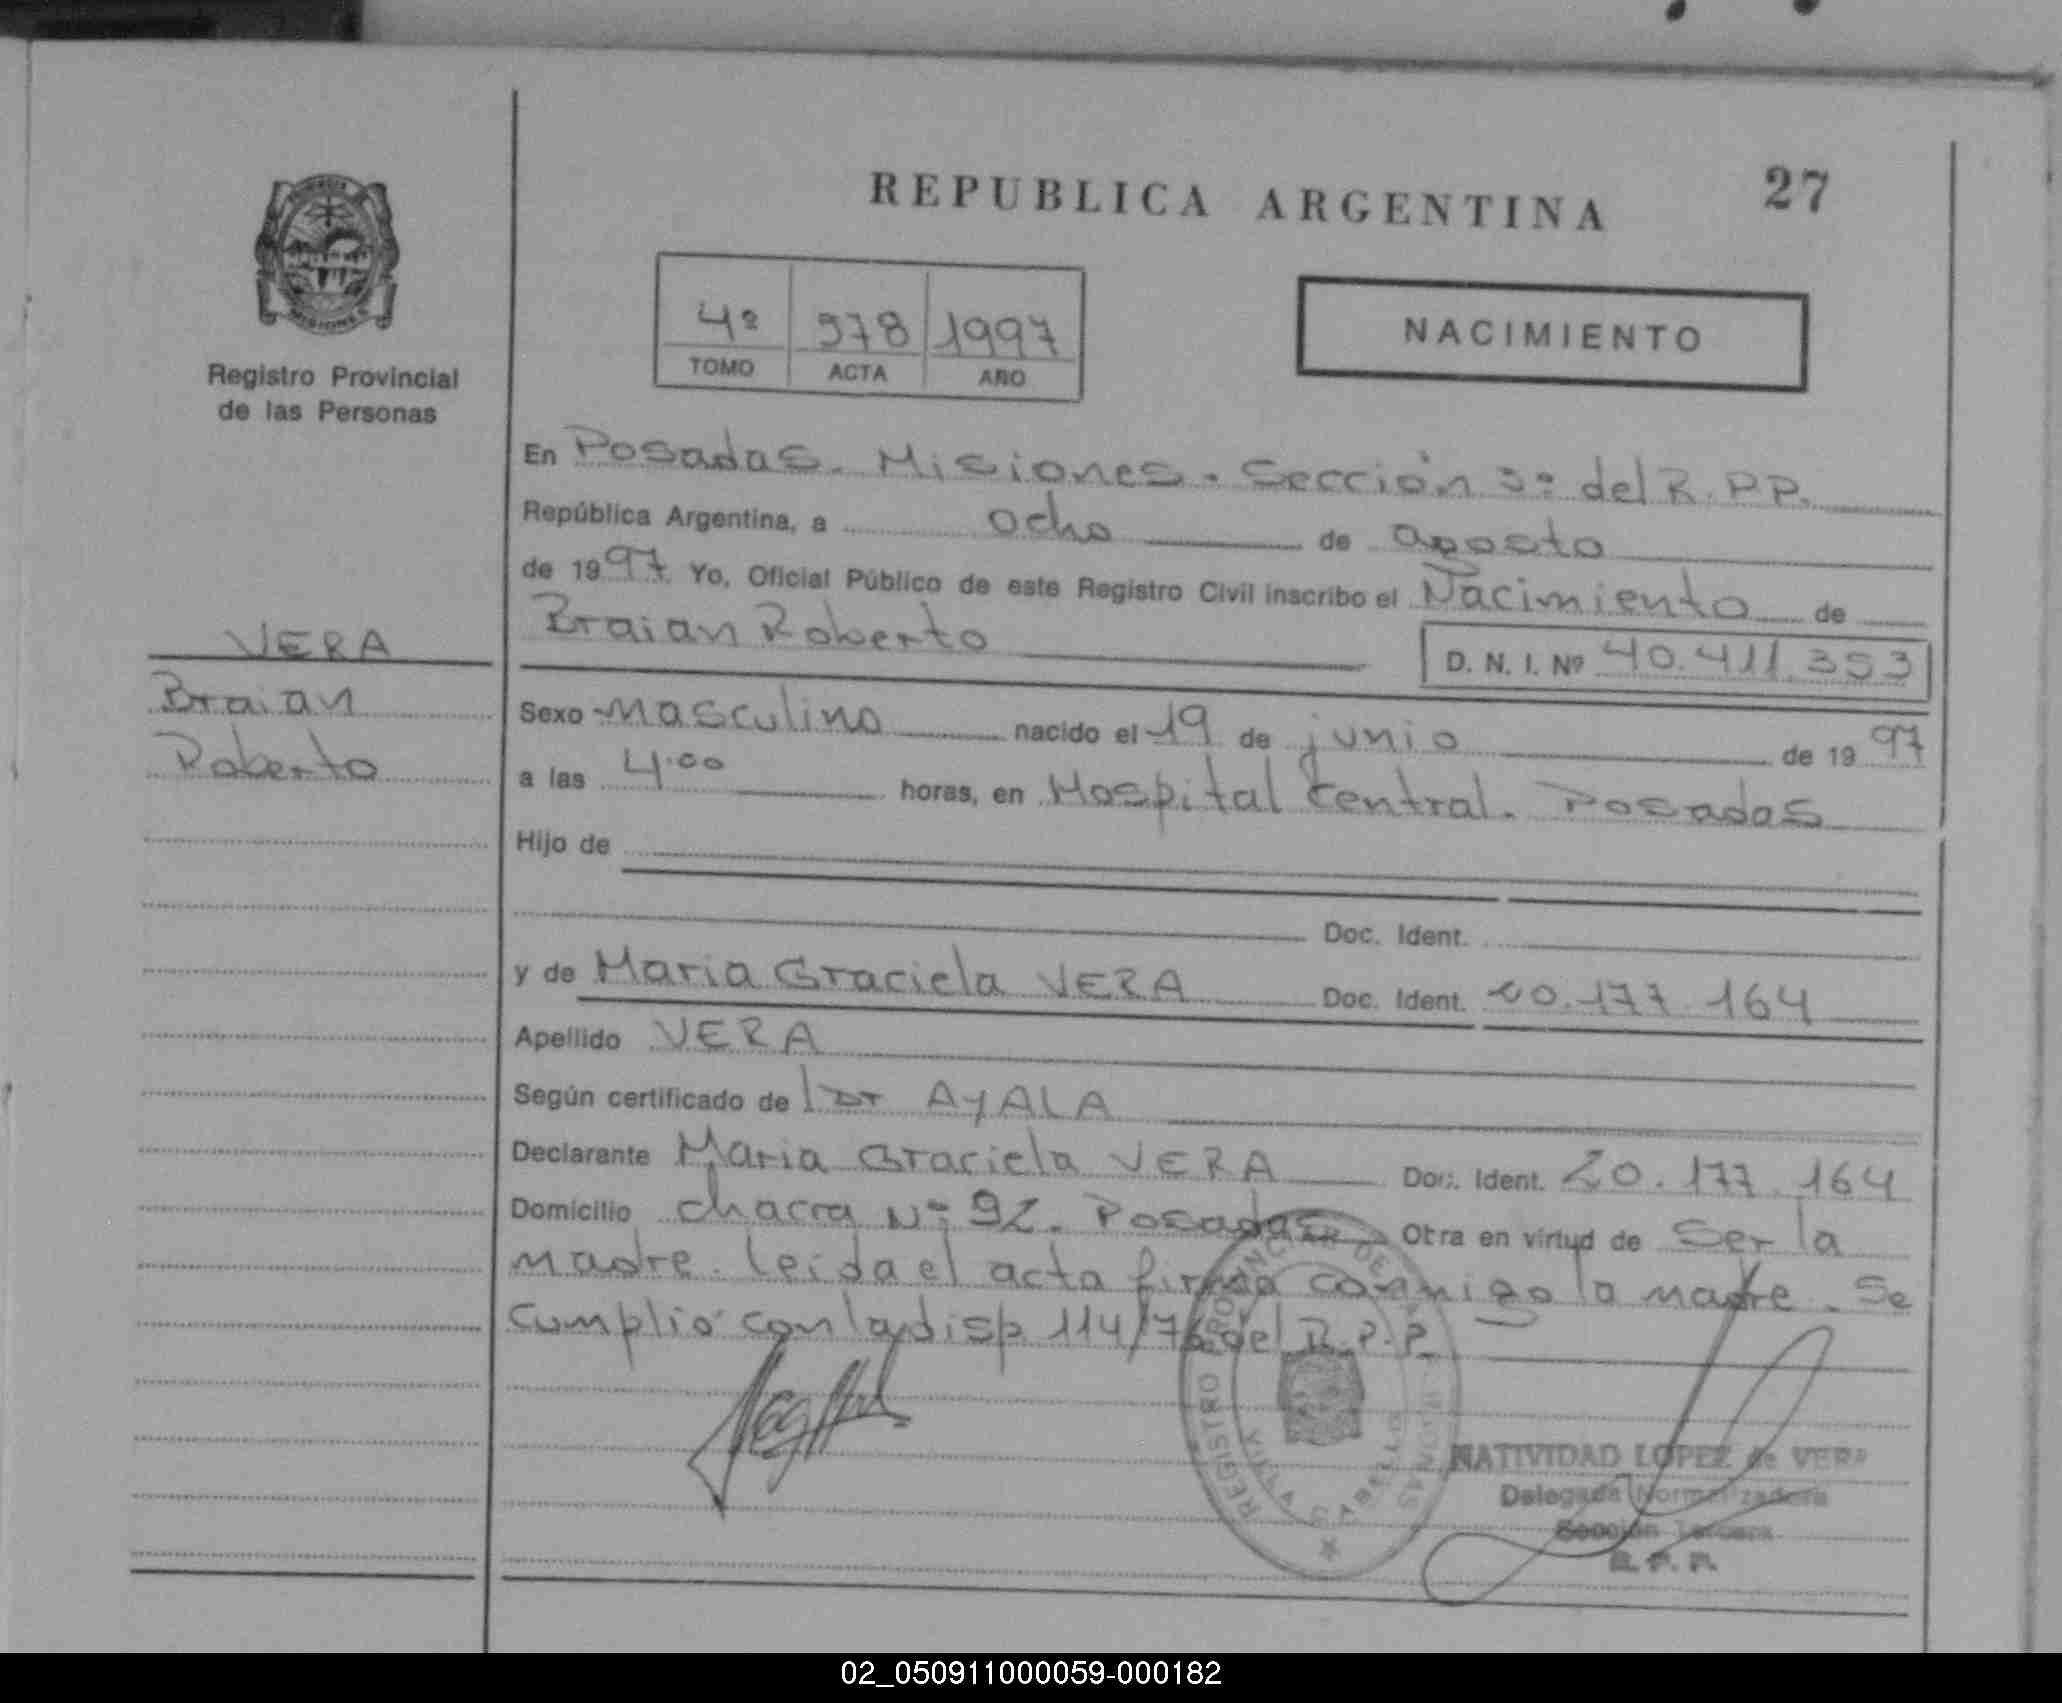 REPUBLICA ARGENTINA 27
4º 978 1997
TOMO ACTA AÑO
NACIMIENTO
Registro Provincial
de las Personas
VERA
Braian
Roberto
En Posadas. Misiones. Sección 3º del R.P.P.
República Argentina, a ocho de agosto
de 1997 Yo, Oficial Público de este Registro Civil inscribo el Nacimiento de
Braian Roberto D. N. I. Nº 40.411.353
Sexo masculino nacido el 19 de junio de 1997
a las 4.00 horas, en Hospital Central. Posadas
Hijo de
Doc. Ident.
y de Maria Graciela VERA Doc. Ident. 20.177.164
Apellido VERA
Según certificado de Dr AyALA
Declarante Maria Graciela VERA Doc. Ident. 20.177.164
Domicilio chacra Nº 92. Posadas Otra en virtud de Ser la
madre. leida el acta firma conmigo la madre. Se
cumplió con la disp. 114/76 del R.P.P.
REGISTRO PROVINCIAL DE LAS PERSONAS
NATIVIDAD LOPEZ de VERA
Delegada Normalizadora
Sección Tercera
R. P. P.
02_050911000059-000182